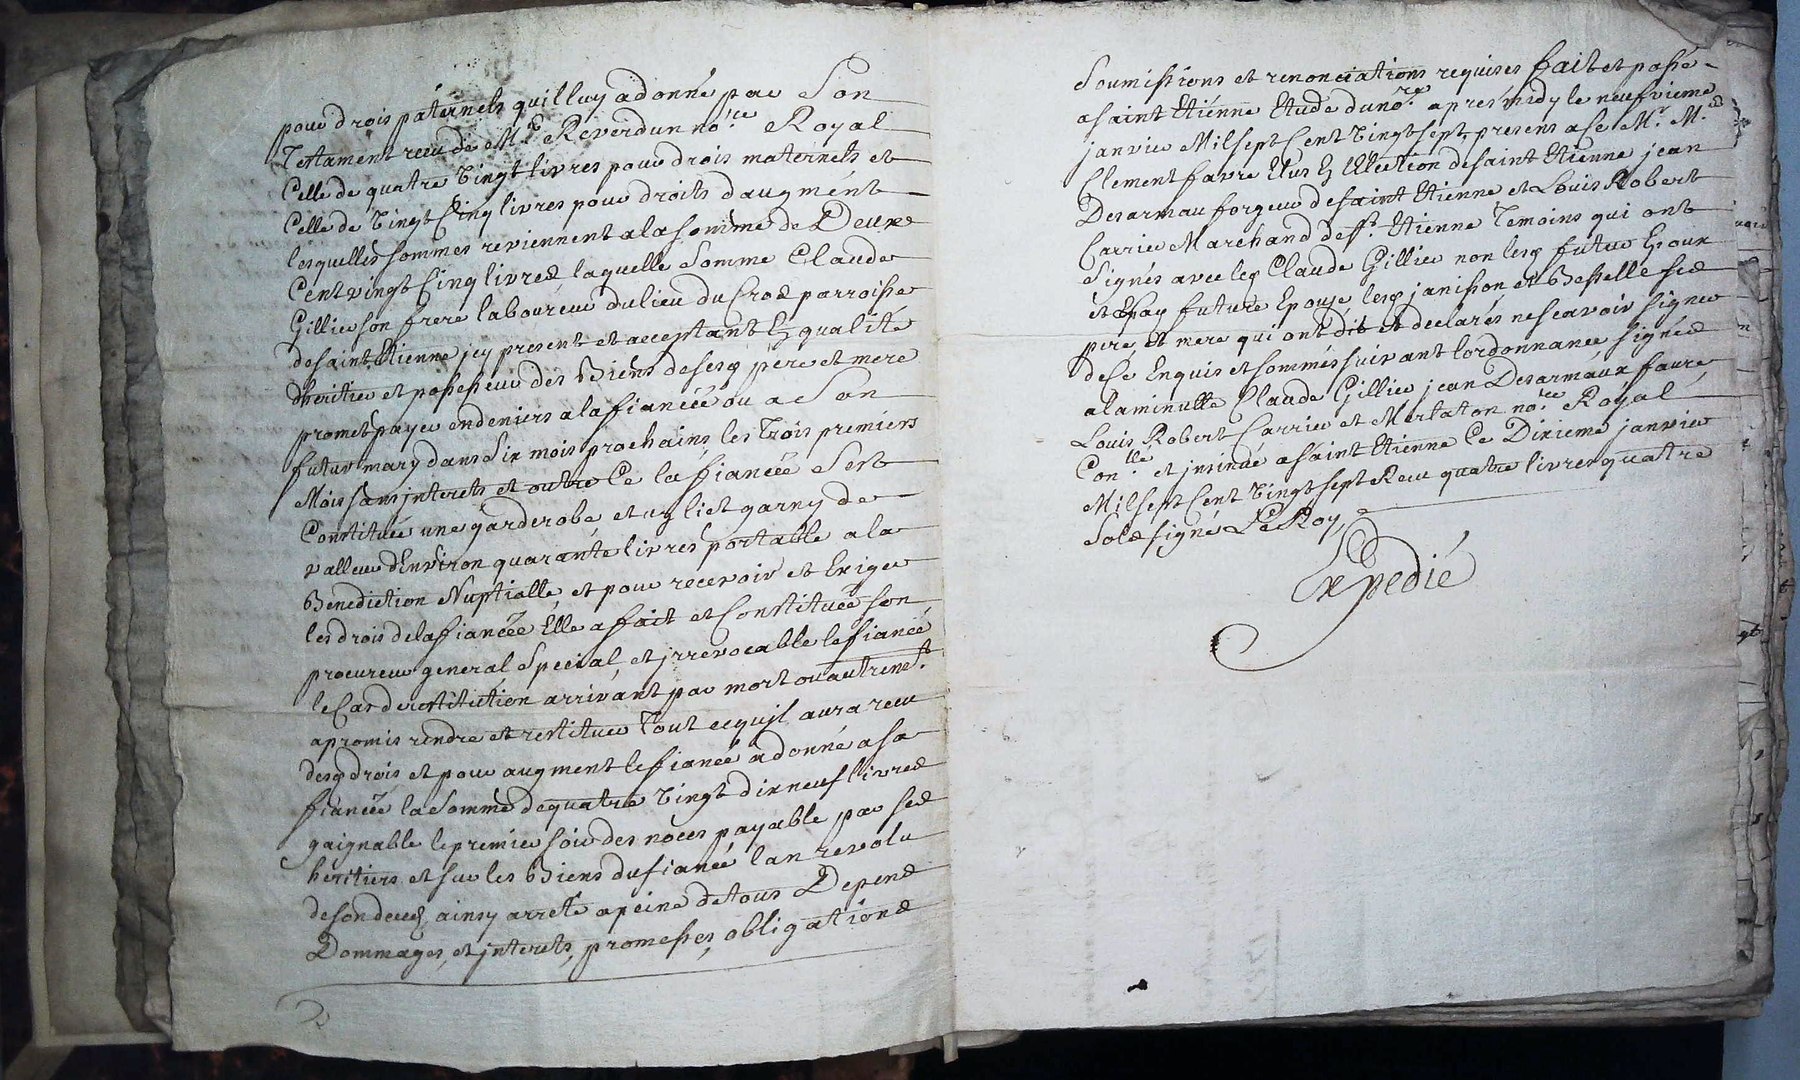 pour drois paternels quil luy a donné par Son
Testament receu de Me Reverdun nore Royal
Celle de quatre vingt livres pour drois maternels et
Celle de vingt Cinq livres pour droits daugment
lesquelles sommes reviennent a la somme de Deux
Cent vingt Cinq livres, laquelle Somme Claude
Gillier son frere laboureur du lieu du Cros parroisse
de saint Etienne jcy present et acceptant En qualité
dheritier et possesseur des Biens de sesd pere et mere
promet payer en deniers a la fiancée ou a Son
futur mary dans Six mois prochains les Trois premiers
Mois sans jnterets et outre Ce la fiancée Sest
Constituée une garderobe et un lict garny de
valleur dEnviron quarante livres portable a la
Benediction Nuptialle, et pour recevoir et Exiger
les drois de la fiancée Elle a fait et Constitué son
procureur general Special, et jrrevocable le fiancé
le Cas de restitution arrivant par mort ou autrement
a promis rendre et restituer Tout ce quil aura receu
desd drois et pour augment le fiancé a donné a sa
fiancée la Somme de quatre vingt dix neuf livres
gaignable le premier soir des noces payable par ses
heritiers et sur les Biens du fiancé lan revolu
de son deced ainsy arreté a peine de tous Depens
Dommages, et jnterets, promesses, obligations
Soumissions et renonciations requises fait et passé
a saint Etienne Etude du nore aprés midy le neufvieme
janvier Mil sept Cent vingt sept, presens a ce Mr Me
Clement favre Elus En lElection de saint Etienne jean
Desarmau forgeur de saint Etienne et Louis Robert
Carrier Marchand de st Etienne Temoins qui ont
Signés avec led Claude Gillier non lesd futur Epoux
et future Epouse lesd janisson et Besselle ses
pere, et mere qui ont dit et declarés ne scavoir signer
de Ce Enquis et sommes suivant lordonnance Signés
a la minutte Claude Gillier jean Desarmaux faure
Louis Robert Carrier et Mertaton nore Royal
Conlle et jnsinué a saint Etienne le Dixieme janvier
Mil sept Cent vingt sept Receu quatre livres quatre
Sols signé Le Roy
Expedié